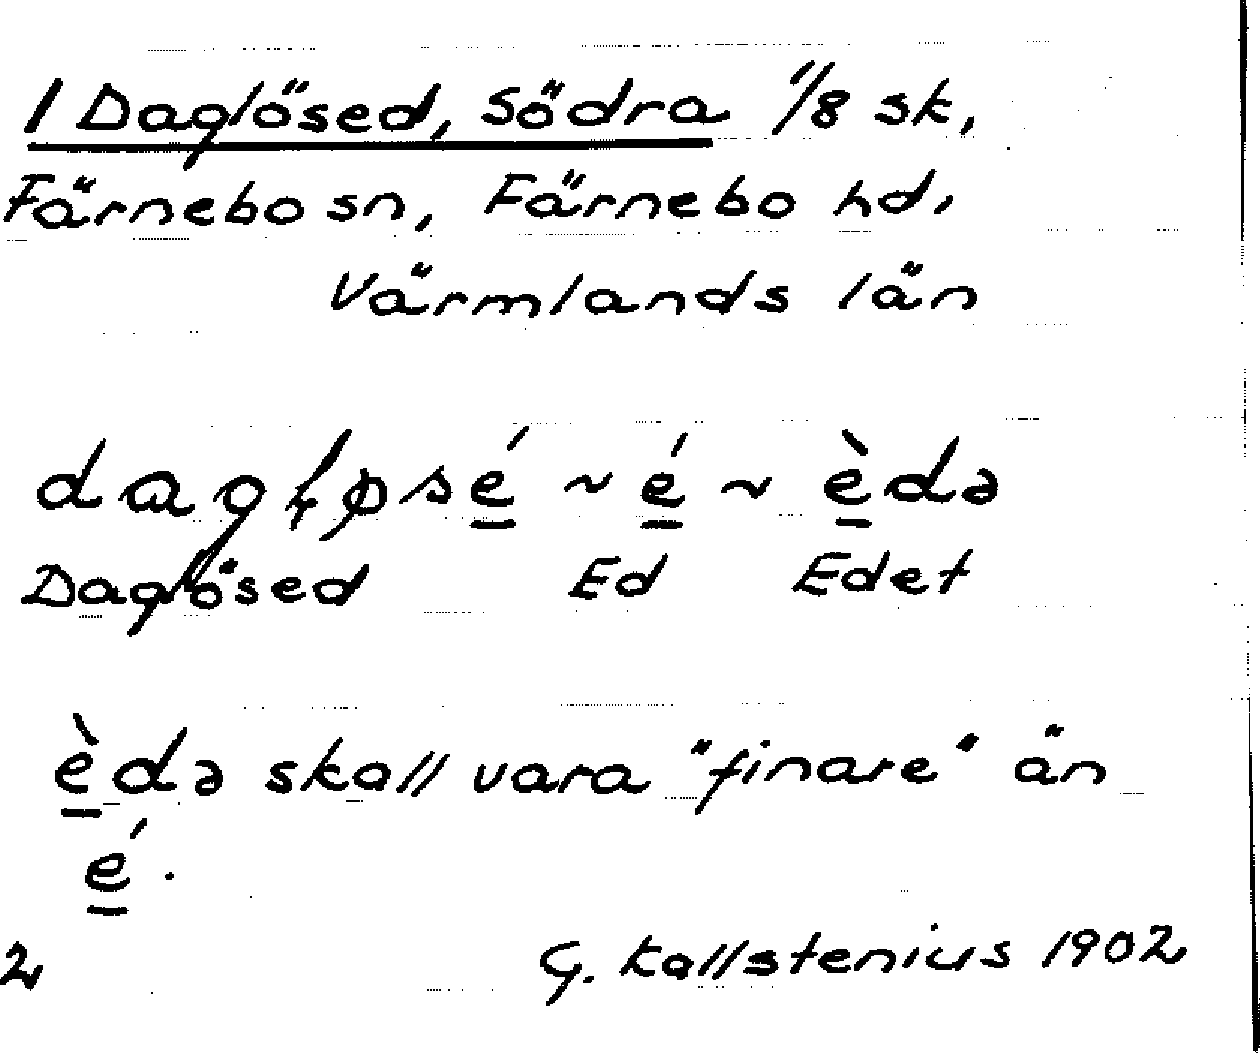 1 Daglösed, Södra 1/8 sk,
Färnebo sn, Färnebo hd,
Värmlands län
é̲ ~ é̲ ~ è̲də
Daglösed Ed Edet
è̲də skall vara "finare" än
é̲.
2 G. Kallstenius 1902